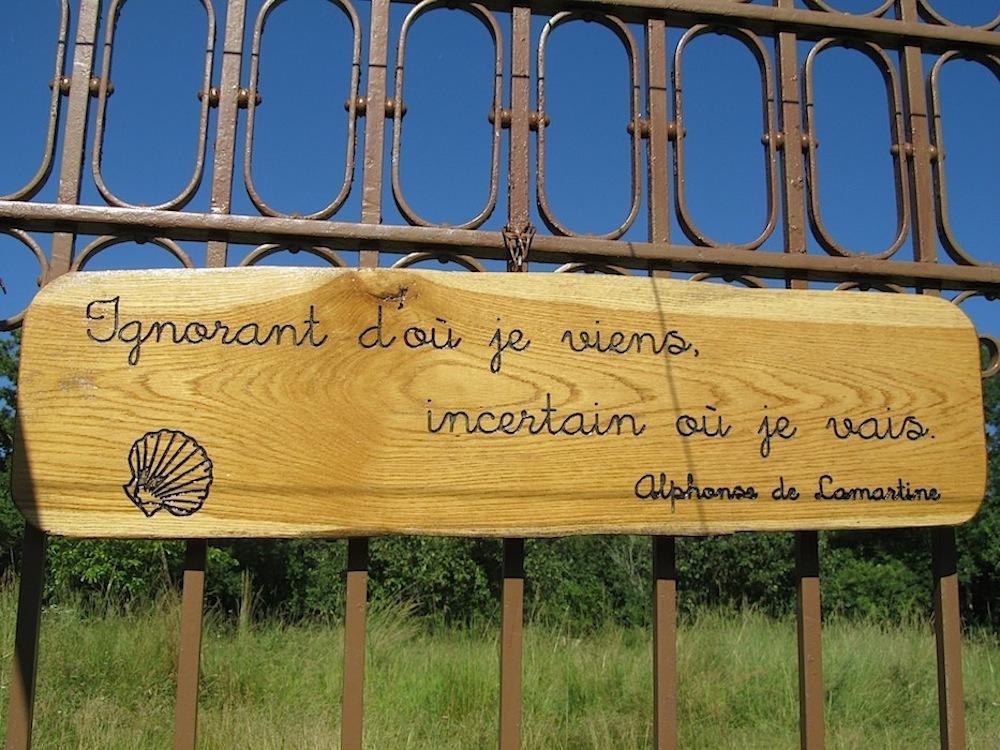 Ignorant d'où je viens,
incertain où je vais.
Alphonse de Lamartine